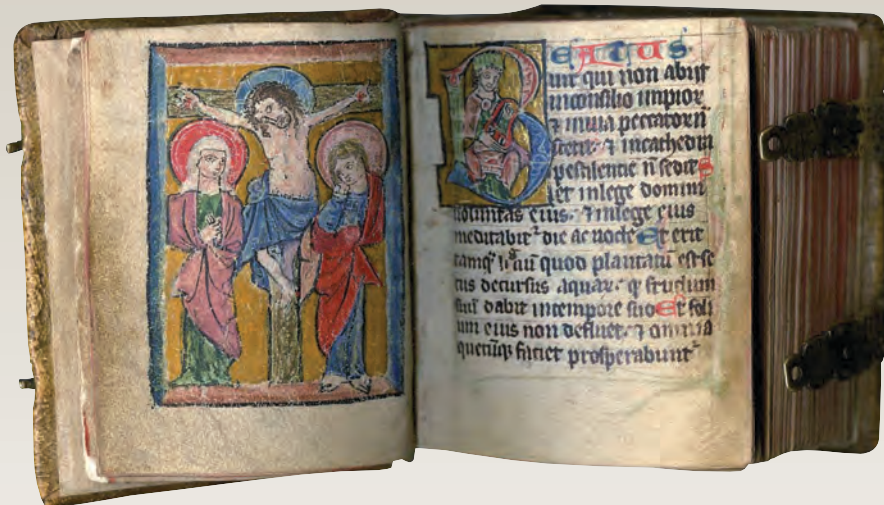 BEATUS
uir qui non abijt
inconsilio impior
⁊ inuia peccatorũ
stetit ⁊ incathedra
pestilentie ñ sedit S
et inlege domini
uoluntas eius ⁊ inlege eius
meditabit die ac nocte Et erit
tamq̃ quod plantatũ est se
cus decursus aquar q̃ fructum
suũ dabit intempore suo Et foli
um eius non defluet ⁊ omnia
quecũq faciet prosperabunt